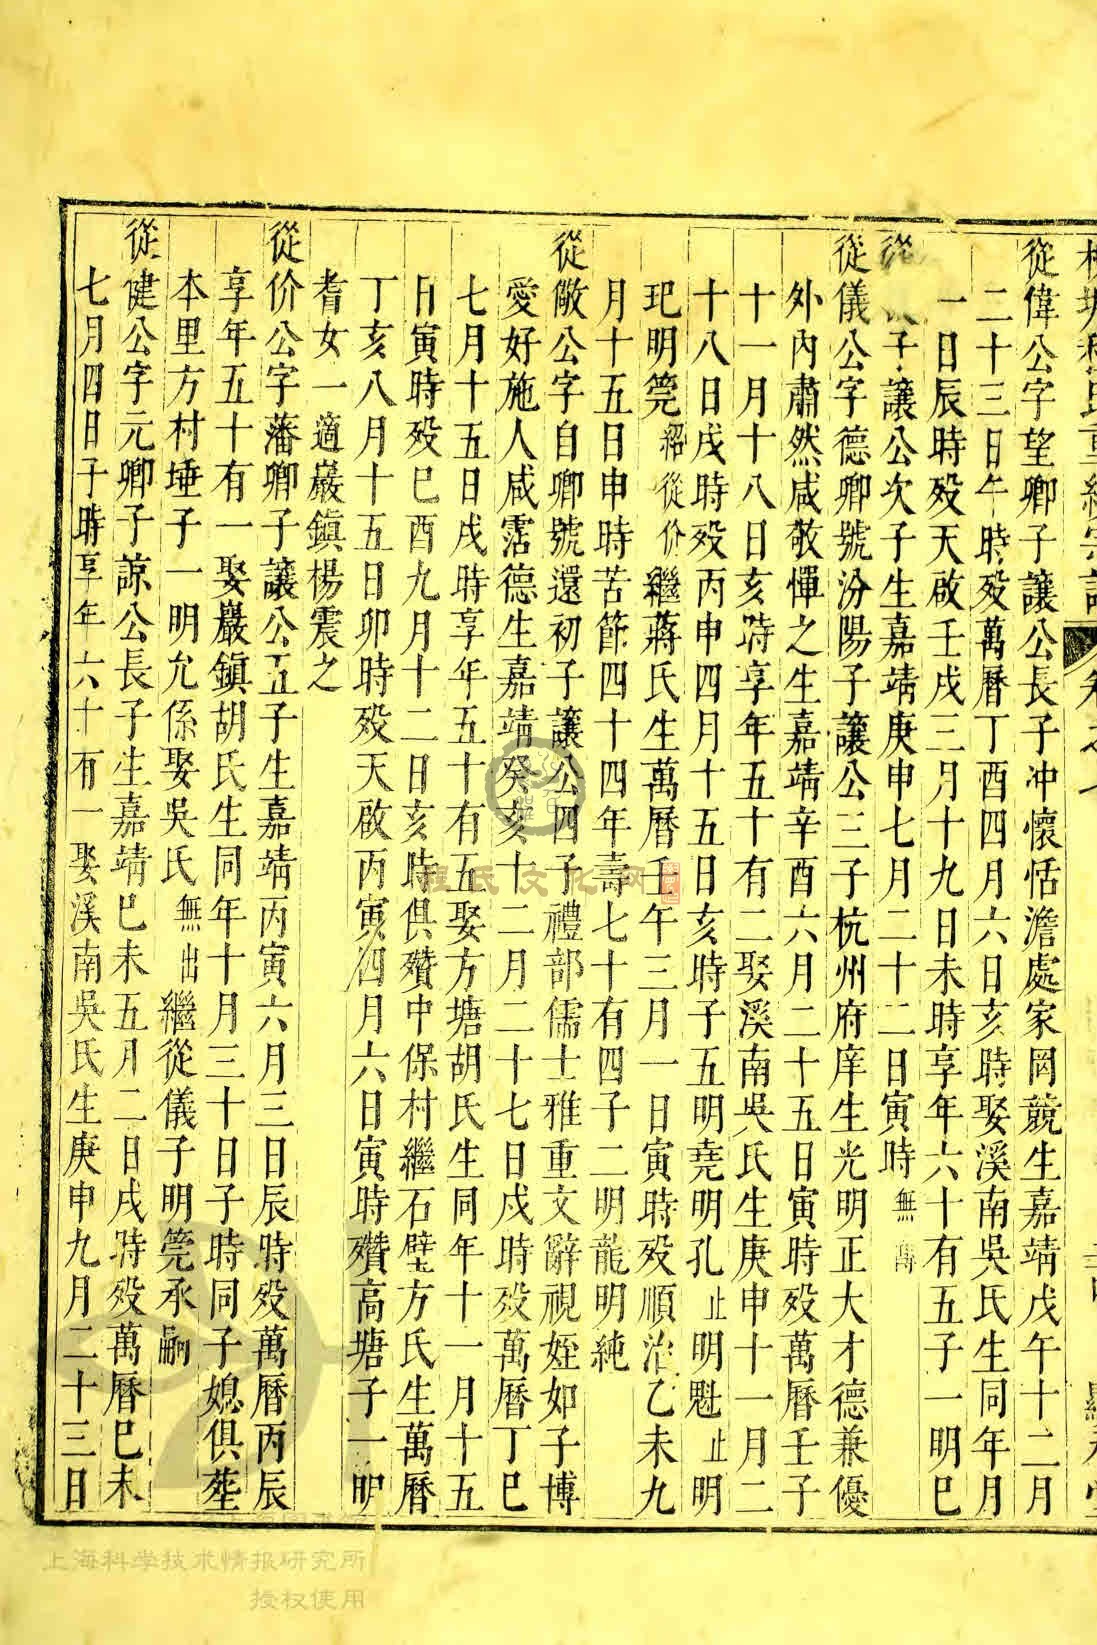 從偉公字望卿子讓公長子冲懷恬澹處家岡競生嘉靖戊午十二月
二十三日午時歿萬曆丁酉四月六日亥時娶溪南吳氏生同年月
一日辰時歿天啟壬戌三月十九日未時享年六十有五子一明巳
從 子讓公次子生嘉靖庚申七月二十二日寅時無傳
從儀公字德卿號汾陽子讓公三子杭州府庠生光明正大才德兼優
外內肅然咸敬憚之生嘉靖辛酉六月二十五日寅時歿萬曆壬子
十一月十八日亥時享年五十有二娶溪南吳氏生庚申十一月二
十八日戌時歿丙申四月十五日亥時子五明堯明孔止明魁止明
玘明筦紹從价繼蔣氏生萬曆壬午三月一日寅時歿順治乙未九
月十五日申時苦節四十四年壽七十有四子二明龍明純
從敞公字自卿號還初子讓公四子禮部儒士雅重文辭視姪如子博
愛好施人咸霑德生嘉靖癸亥十二月二十七日戌時歿萬曆丁巳
七月十五日戌時享年五十有五娶方塘胡氏生同年十一月十五
日寅時歿巳酉九月十二日亥時俱殯中保村繼石壁方氏生萬曆
丁亥八月十五日卯時歿天啟丙寅四月六日寅時殯高塘子一明
耆女一適巖鎮楊震之
從价公字藩卿子讓公五子生嘉靖丙寅六月三日辰時歿萬曆丙辰
享年五十有一娶巖鎮胡氏生同年十月三十日子時同子媳俱葬
本里方村埵子一明允係娶吳氏無出繼從儀子明筦承嗣
從健公字元卿子諒公長子生嘉靖巳未五月二日戌時歿萬曆巳未
七月四日子時享年六十有一娶溪南吳氏生庚申九月二十三日
程氏文化网
上海科学技术情报研究所
授权使用